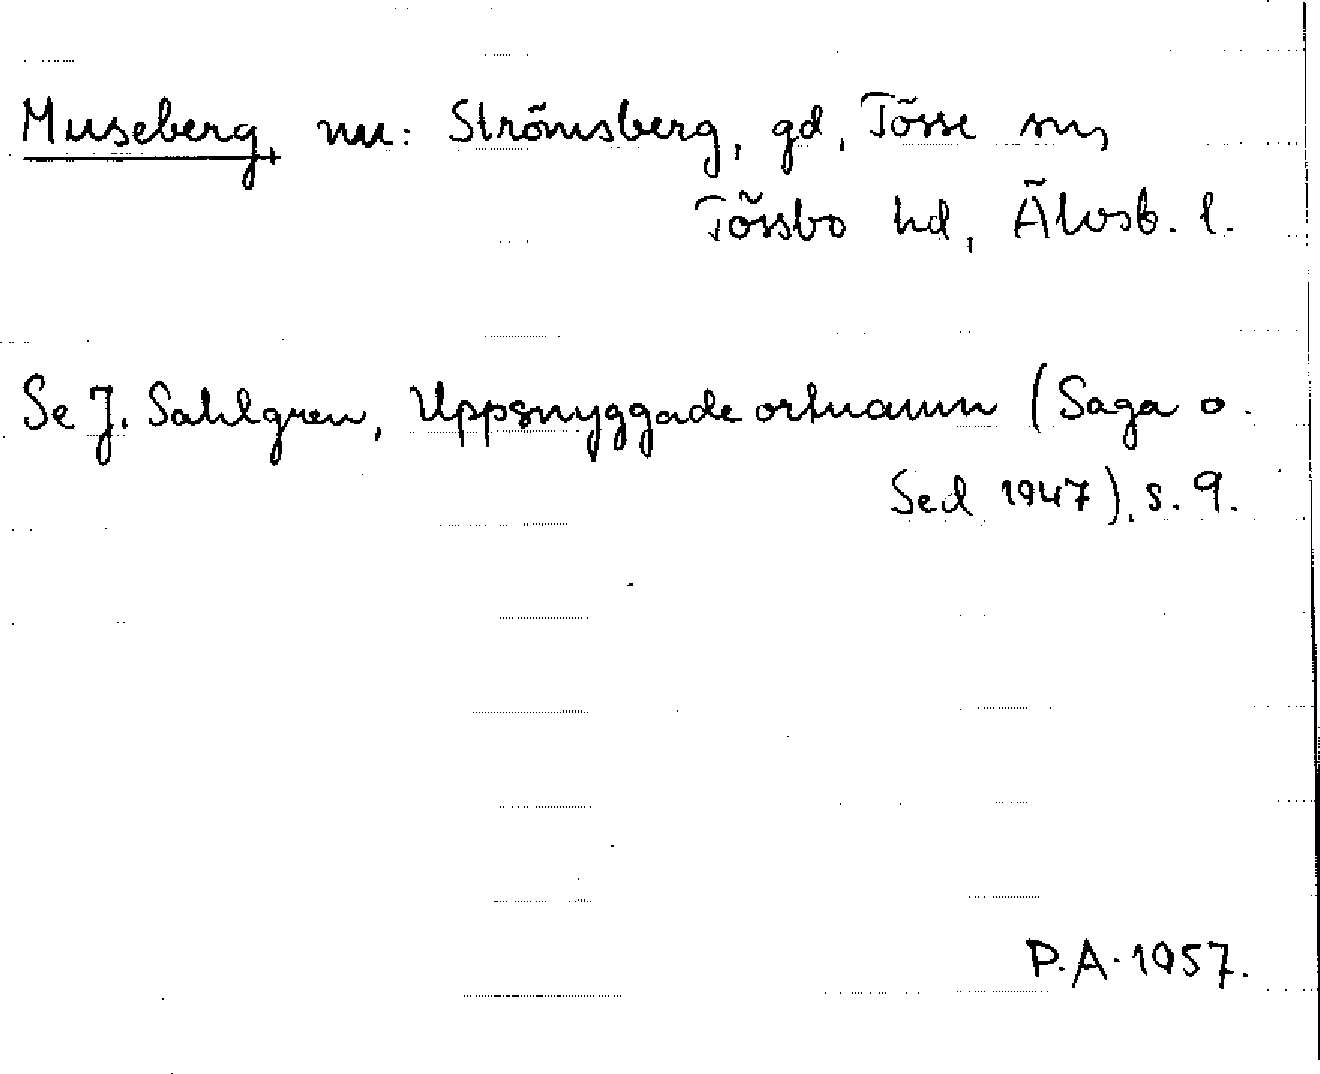 Museberg, nu: Strömsberg, gd, Tösse sn,
Tössbo hd, Älvsb. l.
Se J. Sahlgren, Uppsnyggade ortnamn (Saga o.
Sed 1947), s. 9.
P.A. 1957.